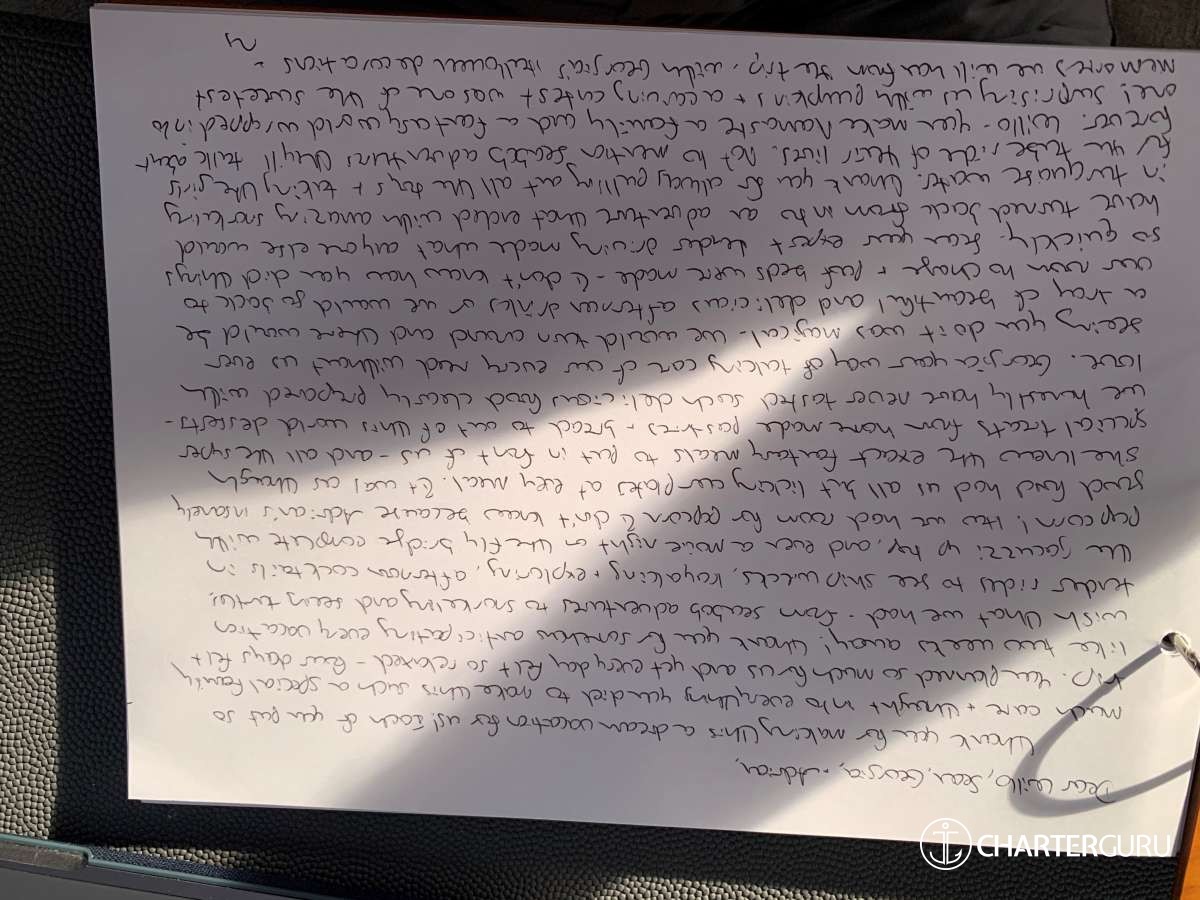 Dear Willo, Sean, Georgia, + Adrian,
Thank you for making this a dream vacation for us! Each of you put so
much care + thought into everything you did to make this such a special family
trip. You planned so much for us and yet every day felt so relaxed - four days felt
like two weeks away! Thank you for somehow anticipating every vacation
wish that we had - from seabob adventures to snorkeling and seeing turtles,
tender rides to see ship wrecks, kayaking + exploring, afternoon cocktails in
the jacuzzi up top, and even a movie night on the fly bridge complete with
popcorn! How we had room for popcorn I don't know because Adrian's insanely
good food had us all but licking our plates at every meal. It was as though
she knew the exact fantasy meals to put in front of us - and all the super
special treats from home made pastries + bread to out of this world desserts -
we honestly have never tasted such delicious food clearly prepared with
love. Georgia your way of taking care of our every need without us ever
seeing you do it was magical - we would turn around and there would be
a tray of beautiful and delicious afternoon drinks or we would go back to
our room to change + poof beds were made - I don't know how you did things
so quickly. Sean your expert tender driving made what anyone else would
have turned back from into an adventure that ended with amazing snorkeling
in turquoise water. Thank you for always pulling out all the toys + taking the girls
for the tube ride of their lives. Not to mention seabob adventures they'll talk about
forever. Willo - you make Namaste a family and a fantasy world wrapped into
one! Suprising us with pumpkins + a carving contest was one of the sweetest
memories we will have from the trip, with Georgia's halloween decorations -
CHARTERGURU